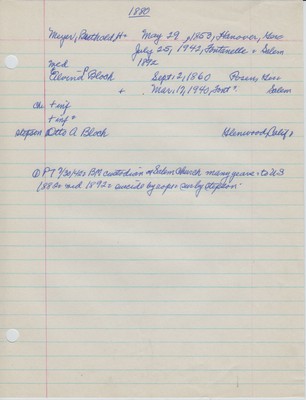 1880
Meyer, Berthold H. May 29, 1859, Hanover, Ger
July 25, 1942, Fontenelle & Salem
md 1892
Elvena Block Sept. 2, 1860 Posen, Ger
+ Mar. 17, 1940, Font & Salem
ch + inf
+ inf
stepson Otto A Block Glenwood, Calif
① PT 7/30/42 BM custodian of Salem Church many years - to US
1880s md 1892 suicide by rope sur by stepson